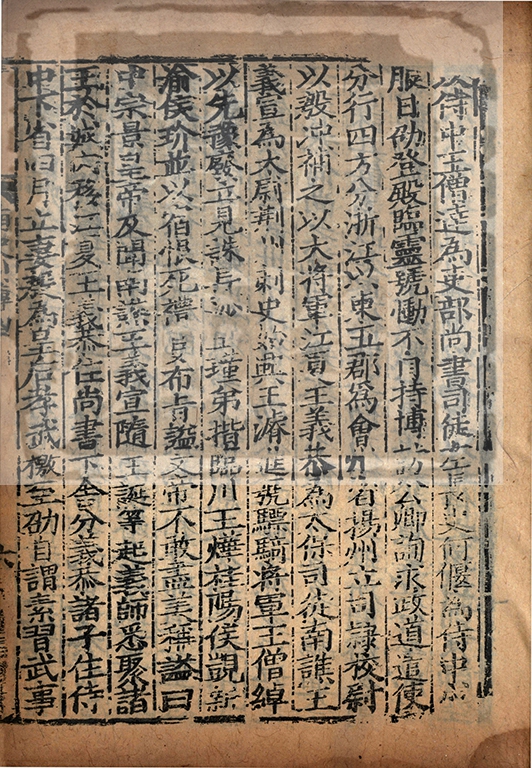 侍中王僧達為吏部尚書司徒左長史何偃為侍中成
服日劭登殿臨靈號慟不自持博訪公卿詢求政道遣使
分行四方分浙江以東五郡為會州省揚州立司隷校尉
以殷沖補之以大將軍江夏王義恭為太保司徒南譙王
義宣為太尉荆州刺史始興王濬進號驃騎將軍王僧綽
以先豫廢立見誅長沙王瑾弟楷臨川王燁桂陽侯覬新
渝侯玠並以宿恨死禮官布旨謚文帝不敢盡美稱謚曰
中宗景皇帝及聞南譙王義宣隨王誕等起義師悉聚諸
王於城内移江夏王義恭住尚書下舍分義恭諸子住侍
中下省四月立妻殷為皇后孝武檄至劭自謂素習武事